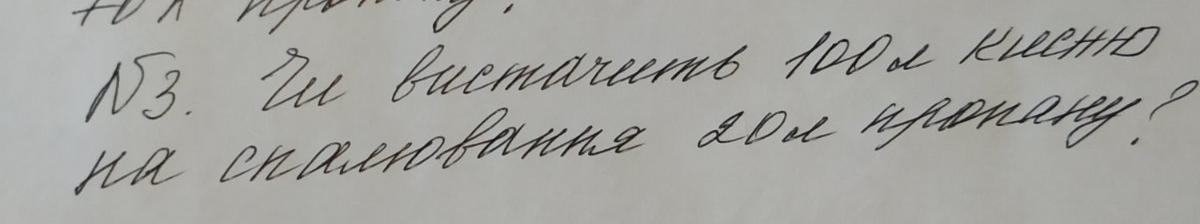 10л пропану?
№3. Чи вистачить 100л кисню
на спалювання 20л пропану?